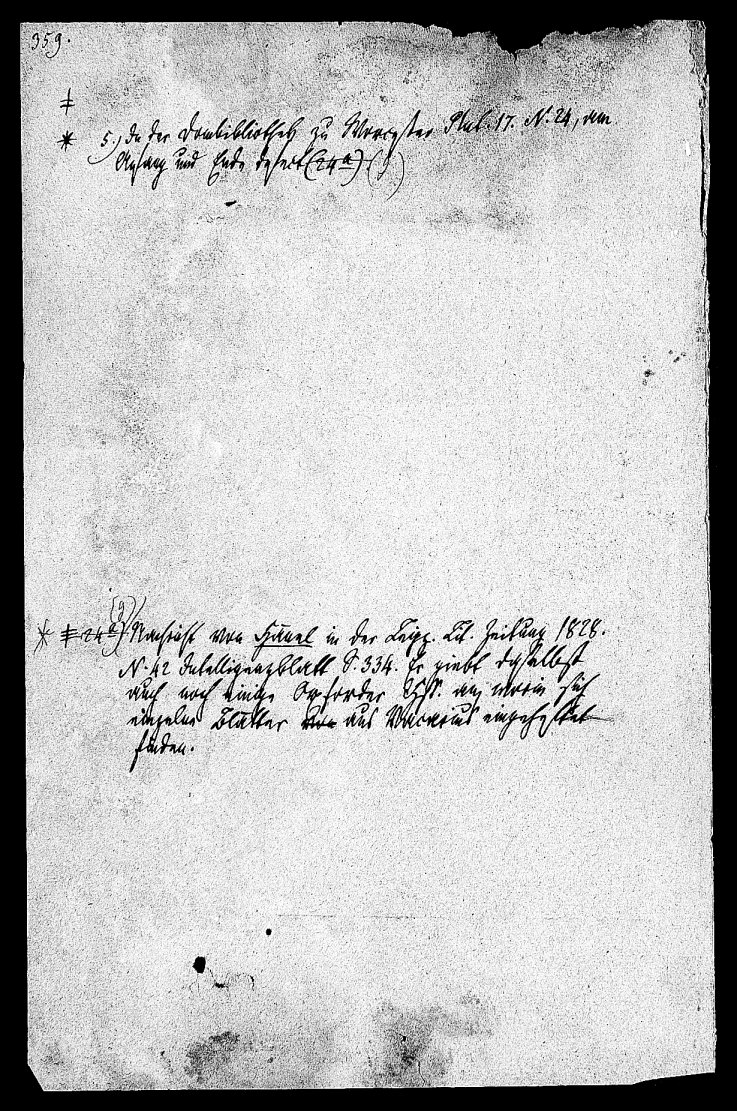 359.
5.) In der Dombibliothek zu Worcester Plut. 17. N. 24, am
Anfang und Ende defect (24a) (g)
(g)
24a) Nachricht von Hänel in der Leipz. Lit. Zeitung 1828.
N. 42 Intelligenzblatt S. 334. Er giebt daselbst
auch noch einige Oxforder Hss. an, worin sich
einzelne Blätter von aus Vacarius eingeheftet
finden.